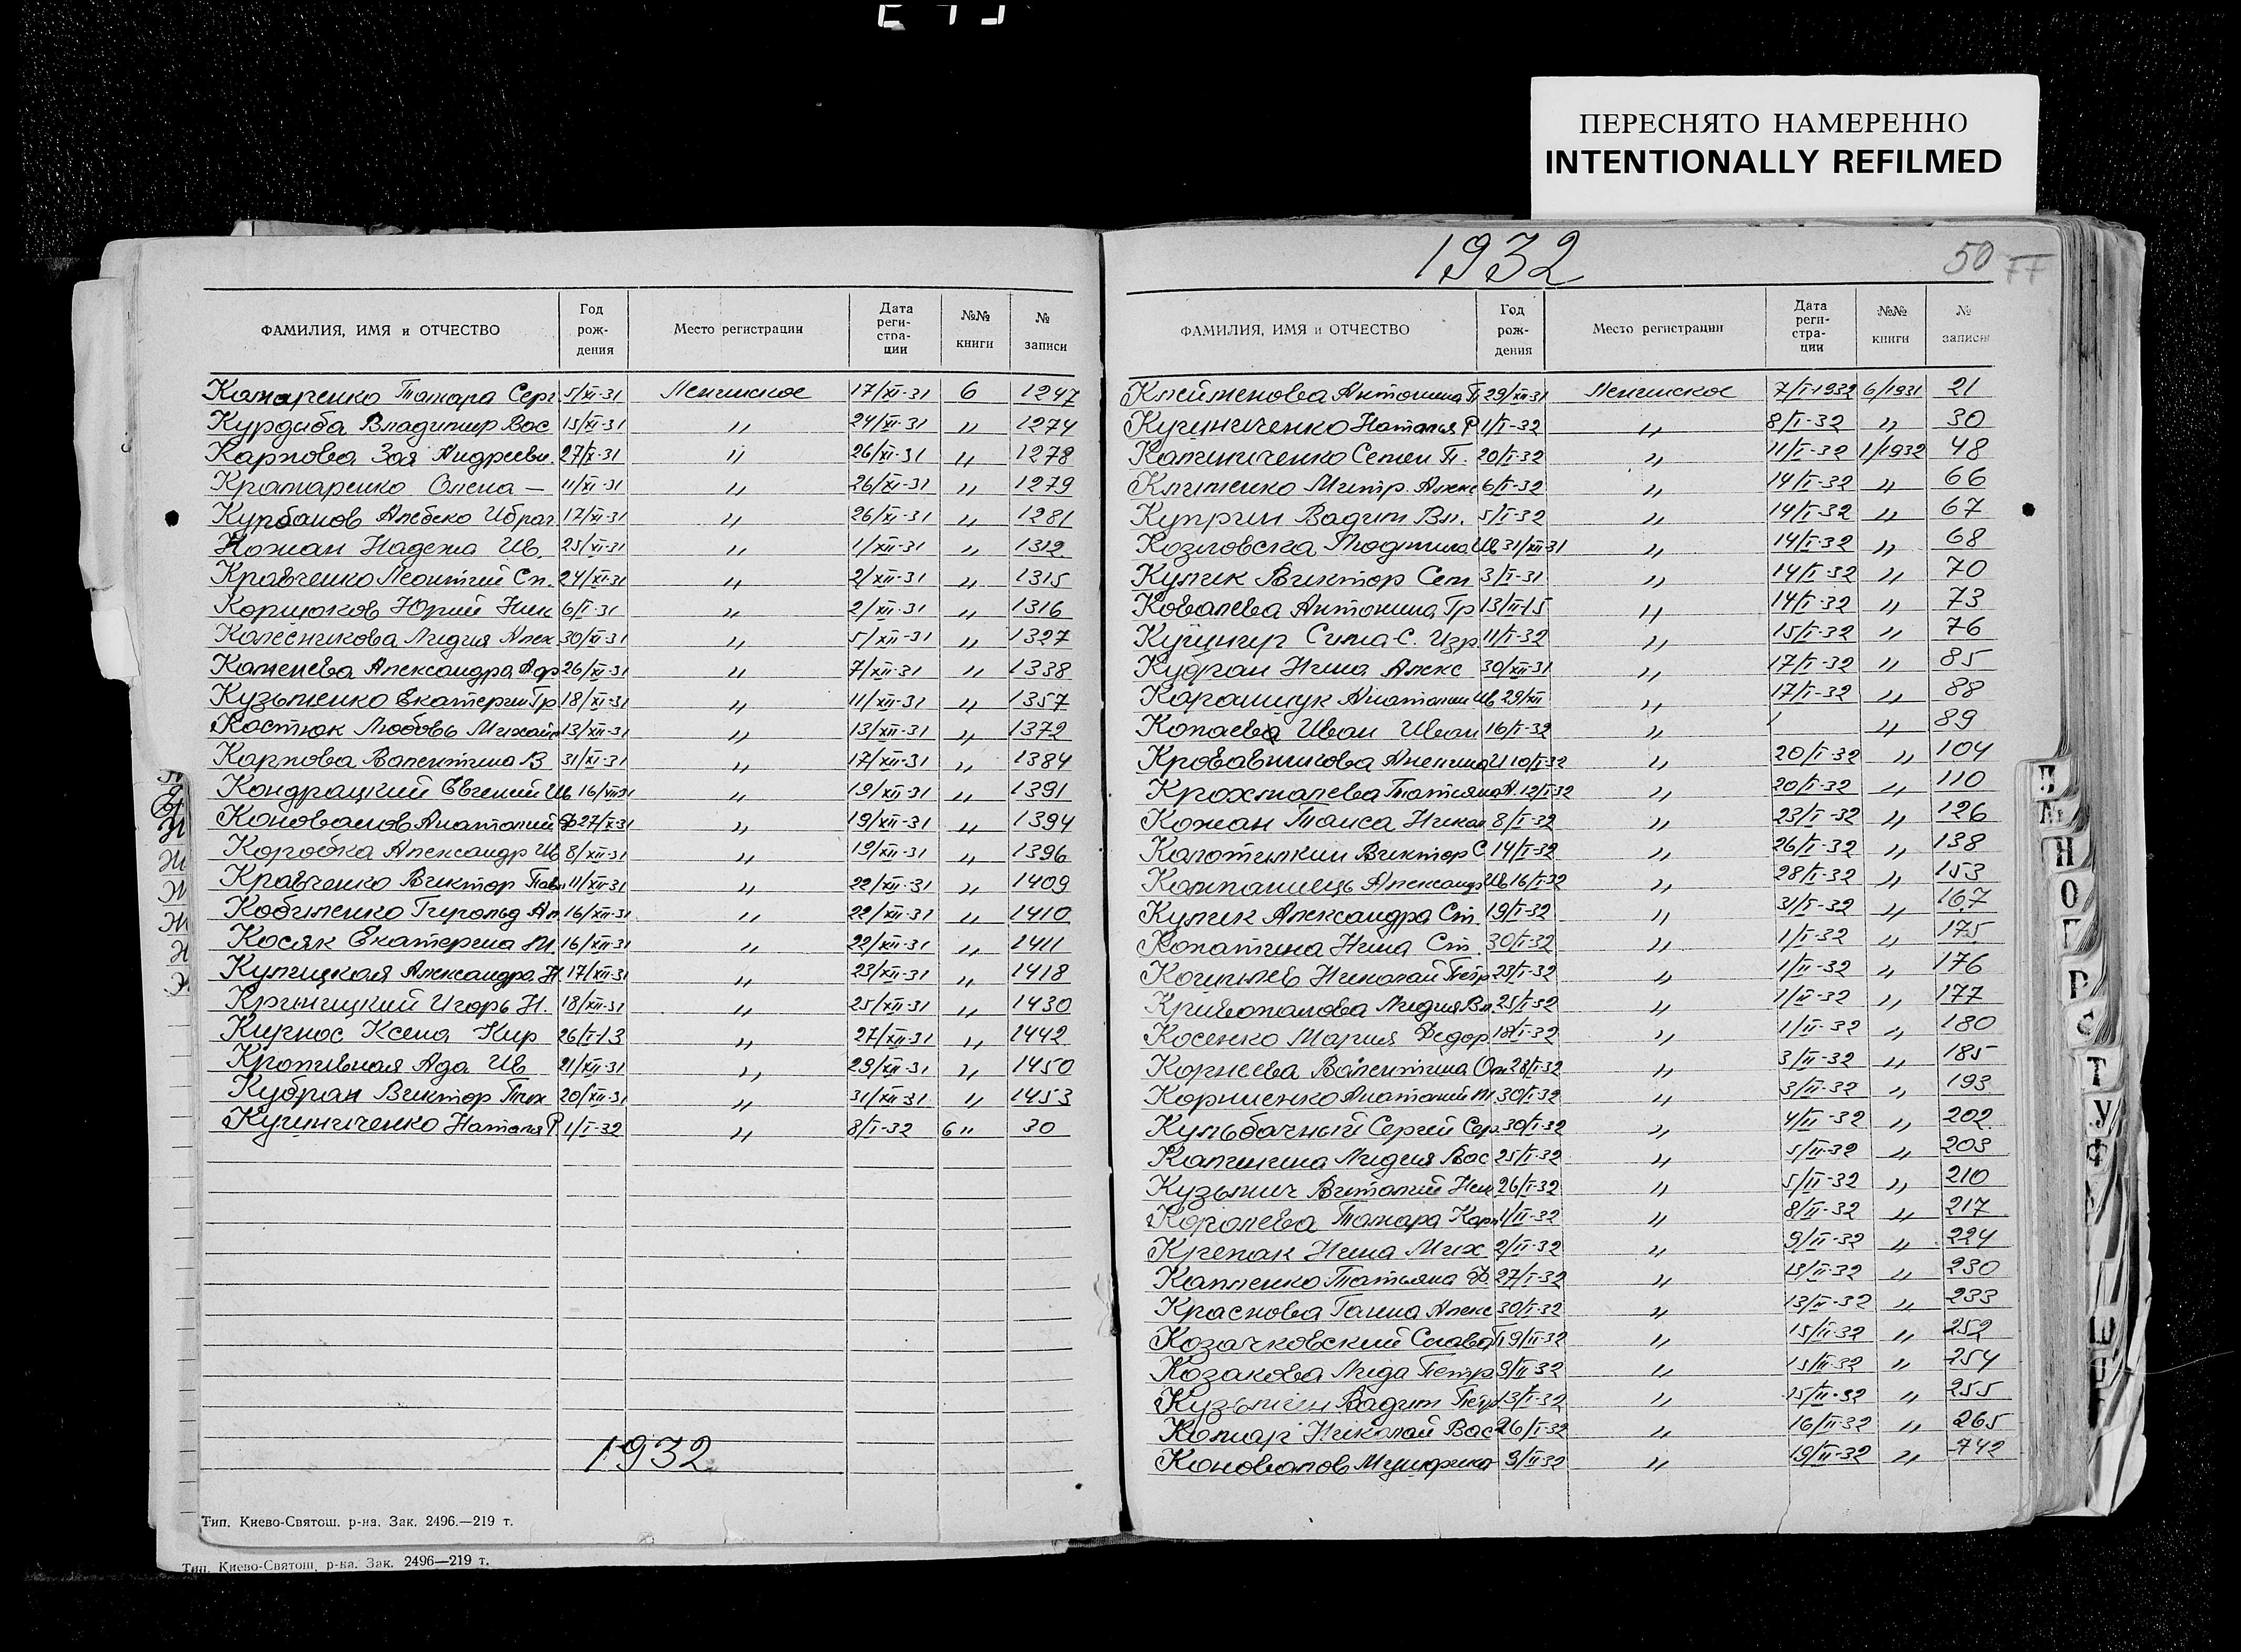 ПЕРЕСНЯТО НАМЕРЕННО
INTENTIONALLY REFILMED
ФАМИЛИЯ, ИМЯ и ОТЧЕСТВО Год рождения Место регистрации Дата регистрации №№ книги № записи
Комаренко Тамара Серг 5/XI-31 Ленинское 17/XI-31 6 1247
Курдиба Владимир Вас 15/XI-31 〃 24/XI-31 〃 1274
Карпова Зоя Андреевн. 27/X-31 〃 26/XI-31 〃 1278
Крамаренко Олена — 11/XI-31 〃 26/XI-31 〃 1279
Курбанов Алебеко Ибраг 17/XI-31 〃 26/XI-31 〃 1281
Кожан Надежа Ив 25/XI-31 〃 1/XII-31 〃 1312
Кравченко Леонтий Сп. 24/XI-31 〃 2/XII-31 〃 1315
Коршоков Юрий Ник 6/I-31 〃 2/XII-31 〃 1316
Колесникова Лидия Алек 30/XI-31 〃 5/XII-31 〃 1327
Каменева Александра Адр 26/XI-31 〃 7/XII-31 〃 1338
Кузьменко Екатерин Гр 18/XI-31 〃 11/XII-31 〃 1357
Костюк Любовь Михайл 13/XII-31 〃 13/XII-31 〃 1372
Карпова Валентина В 31/XI-31 〃 17/XII-31 〃 1384
Кондрацкий Евгений Ив 16/VII-31 〃 19/XII-31 〃 1391
Коновалов Анатолий Ф 27/X-31 〃 19/XII-31 〃 1394
Коробка Александр Ив 8/XII-31 〃 19/XII-31 〃 1396
Кравченко Виктор Павл 11/XII-31 〃 22/XII-31 〃 1409
Кобиленко Гирольд Ал 16/XII-31 〃 22/XII-31 〃 1410
Косяк Екатерина М. 16/XII-31 〃 22/XII-31 〃 1411
Кулицкая Александра Н. 17/XII-31 〃 23/XII-31 〃 1418
Криницкий Игорь Н. 18/XII-31 〃 25/XII-31 〃 1430
Кирнос Ксена Кир 26/I-13 〃 27/XII-31 〃 1442
Кропивная Ада Ив 21/XII-31 〃 29/XII-31 〃 1450
Кубран Виктор Тих 20/XII-31 〃 31/XII-31 〃 1453
Кучниченко Наталя Р 1/I-32 〃 8/I-32 6 〃 30
1932
Тип. Киево-Святош. р-на. Зак. 2496.—219 т.
Тип. Киево-Святош. р-на. Зак. 2496—219 т.
1932
50
ФАМИЛИЯ, ИМЯ и ОТЧЕСТВО Год рождения Место регистрации Дата регистрации №№ книги № записи
Клейменова Антонина П 29/XII-31 Ленинское 7/I-1932 6/1931 21
Кучниченко Наталья Р 1/I-32 〃 8/I-32 〃 30
Калиниченко Семен П. 20/I-32 〃 11/I-32 1/1932 48
Клименко Митр. Алекс 6/I-32 〃 14/I-32 〃 66
Куприн Вадим Вл. 5/I-32 〃 14/I-32 〃 67
Козловска Людмила Ив 31/XII-31 〃 14/I-32 〃 68
Кулик Виктор Сем 3/I-31 〃 14/I-32 〃 70
Ковалева Антонина Гр 13/II-15 〃 14/I-32 〃 73
Кушнир Сима-С. Изр 11/I-32 〃 15/I-32 〃 76
Кубран Нина Алекс 30/XII-31 〃 17/I-32 〃 85
Каранщук Анатолий Ив 29/XII 〃 17/I-32 〃 88
Копаева Иван Иван 16/I-32 〃 〃 89
Кровавникова Ангелина И 10/I-32 〃 20/I-32 〃 104
Крохмалева Татьяна А. 12/I-32 〃 20/I-32 〃 110
Кожан Таиса Никол 8/I-32 〃 23/I-32 〃 126
Колотилкин Виктор С 14/I-32 〃 26/I-32 〃 138
Компаниець Александ Ив 16/I-32 〃 28/I-32 〃 153
Кулик Александра Ст. 19/I-32 〃 31/I-32 〃 167
Копатина Нина Ст. 30/I-32 〃 1/I-32 〃 175
Николай Петр 23/I-32 〃 1/II-32 〃 176
Кривопалова Лидия Вл. 25/I-32 〃 1/II-32 〃 177
Косенко Мария Федор 18/I-32 〃 1/II-32 〃 180
Корнеева Валентина Ом 28/I-32 〃 3/II-32 〃 185
Корниенко Анатолий М. 30/I-32 〃 3/II-32 〃 193
Кульбачный Сергей Сер. 30/I-32 〃 4/II-32 〃 202
Калинина Лидия Вас 25/I-32 〃 5/II-32 〃 203
Кузьмич Виталий Ник 26/I-32 〃 5/II-32 〃 210
Королева Тамара Карп 1/II-32 〃 8/II-32 〃 217
Крепак Нина Мих 2/II-32 〃 9/II-32 〃 224
Капленко Татьяна Ф. 27/I-32 〃 13/II-32 〃 230
Краснова Ганна Алекс 30/I-32 〃 13/II-32 〃 233
Козачковский Слава П 9/II-32 〃 15/II-32 〃 252
Козакова Лида Петр 9/II-32 〃 15/II-32 〃 254
Кузьмин Вадим Петр 13/I-32 〃 15/II-32 〃 255
Комар Николай Вас 26/I-32 〃 16/II-32 〃 265
Коновалов 9/II-32 〃 19/II-32 〃 742
Н
О
Р
С
Т
У
Ф
Ш